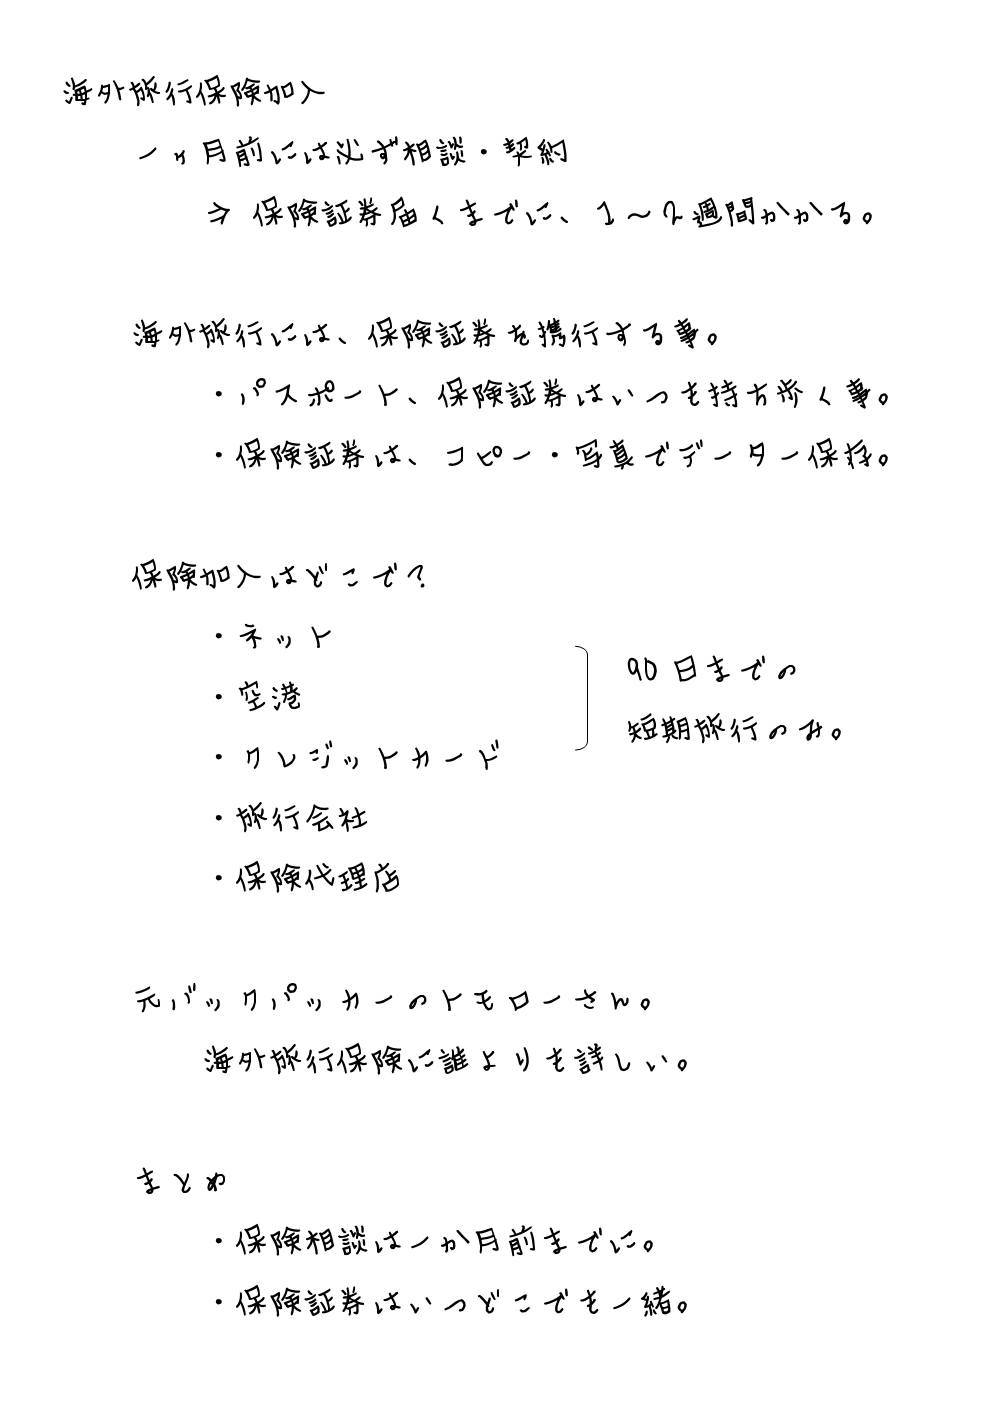 海外旅行保険加入
一ヶ月前には必ず相談・契約
⇒ 保険証券届くまでに、1～2週間かかる。
海外旅行には、保険証券を携行する事。
・パスポート、保険証券はいつも持ち歩く事。
・保険証券は、コピー・写真でデーター保存。
保険加入はどこで？
・ネット
・空港
・クレジットカード
90日までの
短期旅行のみ。
・旅行会社
・保険代理店
元バックパッカーのトモローさん。
海外旅行保険に誰よりも詳しい。
まとめ
・保険相談は一か月前までに。
・保険証券はいつどこでも一緒。